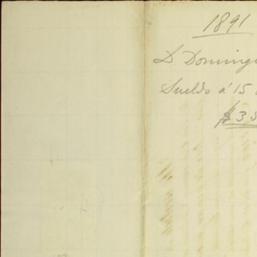 1891
D Doming
Sueldo á 15
$ 3